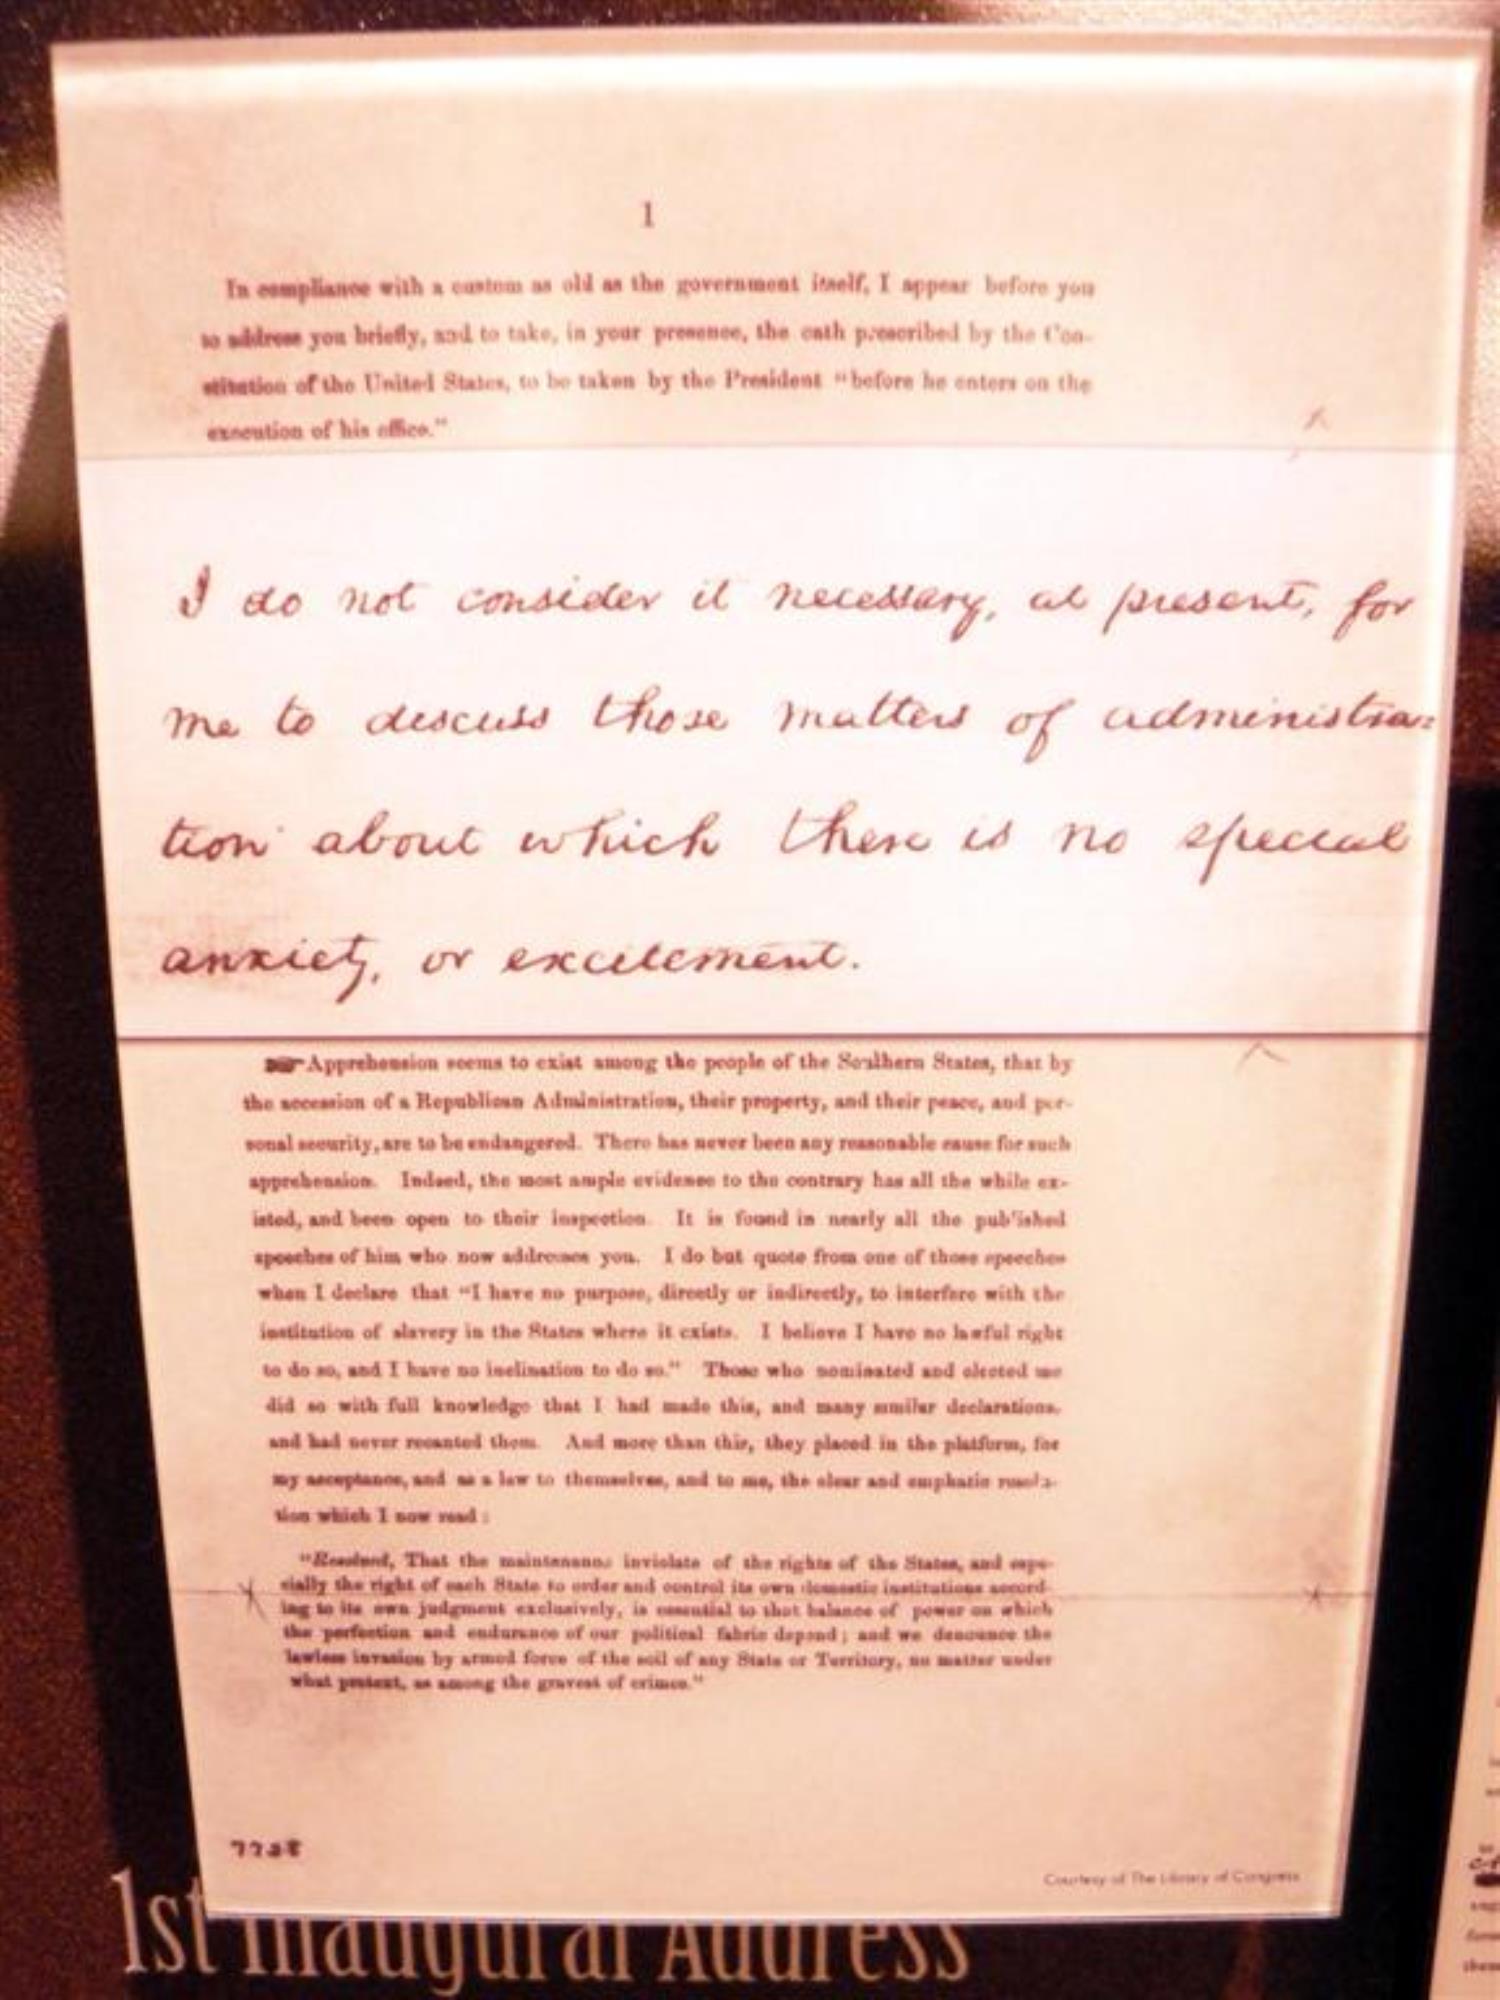 1
In compliance with a custom as old as the government itself, I appear before you
to address you briefly, and to take, in your presence, the oath prescribed by the Con-
stitution of the United States, to be taken by the President "before he enters on the
execution of his office."
I do not consider it necessary, at present, for
me to discuss those matters of administra=
tion about which there is no special
anxiety, or excitement.
Apprehension seems to exist among the people of the Southern States, that by
the accession of a Republican Administration, their property, and their peace, and per-
sonal security, are to be endangered. There has never been any reasonable cause for such
apprehension. Indeed, the most ample evidence to the contrary has all the while ex-
isted, and been open to their inspection. It is found in nearly all the published
speeches of him who now addresses you. I do but quote from one of those speeches
when I declare that "I have no purpose, directly or indirectly, to interfere with the
institution of slavery in the States where it exists. I believe I have no lawful right
to do so, and I have no inclination to do so." Those who nominated and elected me
did so with full knowledge that I had made this, and many similar declarations,
and had never recanted them. And more than this, they placed in the platform, for
my acceptance, and as a law to themselves, and to me, the clear and emphatic resolu-
tion which I now read:
"Resolved, That the maintenance inviolate of the rights of the States, and espe-
cially the right of each State to order and control its own domestic institutions accord-
ing to its own judgment exclusively, is essential to that balance of power on which
the perfection and endurance of our political fabric depend; and we denounce the
lawless invasion by armed force of the soil of any State or Territory, no matter under
what pretext, as among the gravest of crimes."
Courtesy of The Library of Congress
1st Inaugural Address